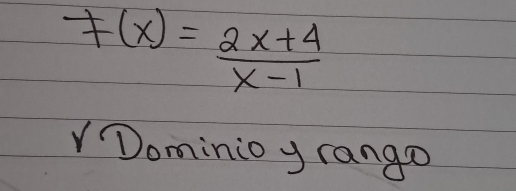 F(x) = 2x+4
x-1
√ Dominio y rango